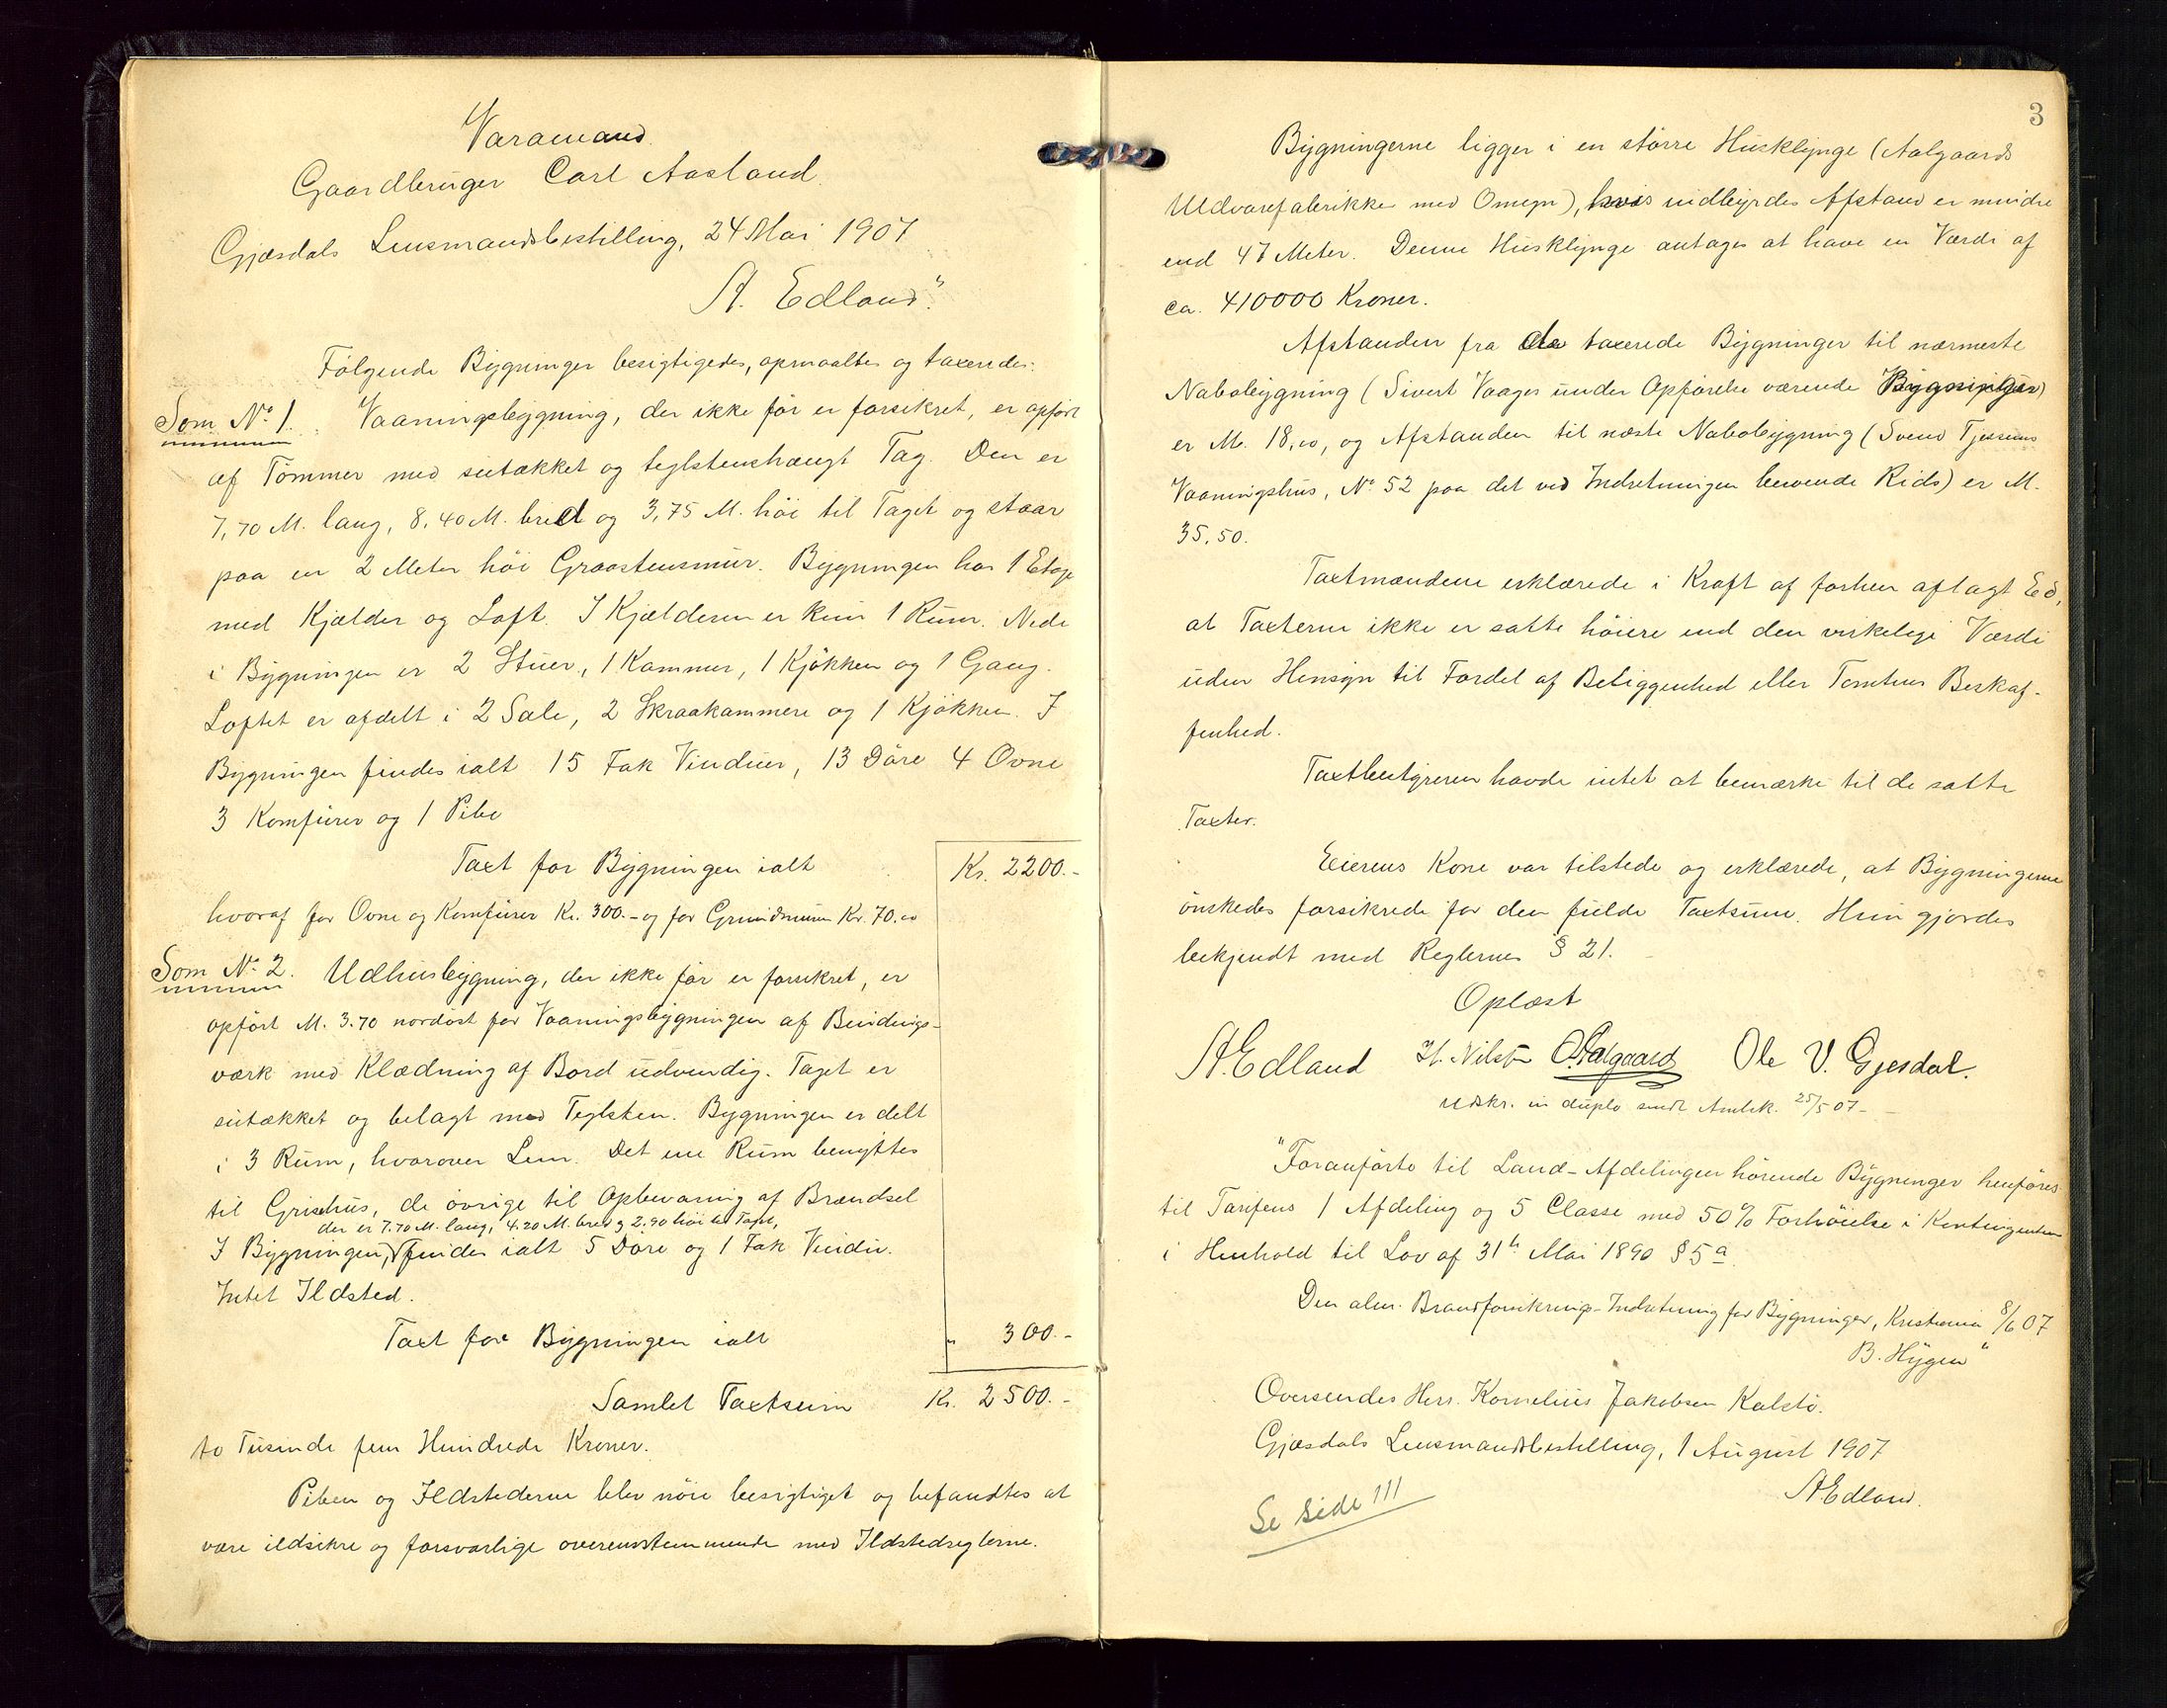 Varamand.
Gaardbruger Carl Aasland.
Gjæsdals Lensmandsbestilling, 24 Mai 1907
A. Edland."
Følgende Bygninger besigtigedes, opmaaltes og taxeredes:
Som No 1. Vaaningsbygning, der ikke før er forsikret, er opført
af Tømmer med sutækket og teglstenshængt Tag. Den er
7,70 M. lang, 8,40 M. bred og 3,75 M. høi til Taget og staar
paa en 2 Meter høi Graastensmur. Bygningen har 1 Etage
med Kjælder og Loft. I Kjælderen er kun 1 Rum. Nede
i Bygningen er 2 Stuer, 1 Kammer, 1 Kjøkken og 1 Gang.
Loftet er afdelt i 2 Sale, 2 Skraakammere og 1 Kjøkken. I
Bygningen findes ialt 15 Fak Vinduer, 13 Døre 4 Ovne
3 Komfurer og 1 Pibe
Taxt for Bygningen ialt Kr. 2200.-
hvoraf for Ovne og Komfurer Kr. 300.- og for Grundmuren Kr. 70.00
Som No 2. Udhusbygning, der ikke før er forsikret, er
opført M. 3.70 nordøst for Vaaningsbygningen af Bindings-
værk med Klædning af Bord udvendig. Taget er
sutækket og belagt med Teglsten. Bygningen er delt
i 3 Rum, hvorover Lem. Det ene Rum benyttes
til Grisehus, de øvrige til Opbevaring af Brændsel
der er 7.70 M. lang, 4.20 M. bred og 2.90 høi til Taget,
I Bygningen, findes ialt 5 Døre og 1 Fak Vindu.
Intet Ildsted.
Taxt for Bygningen ialt " 300.-
Samlet Taxtsum Kr. 2500.-
to Tusinde fem Hundrede Kroner.
Piben og Ildstederne blev nøie besigtiget og befandtes at
være ildsikre og forsvarlige overensstemmende med Ildstedreglerne.
3
Bygningerne ligger i en større Husklynge (Aalgaards
Uldvarefabrikker med Omegn), hvis indbyrdes Afstand er mindre
end 47 Meter. Denne Husklynge antages at have en Værdi af
ca. 410000 Kroner.
Afstanden fra de taxerede Bygninger til nærmeste
Nabobygning (Sivert Vaages under Opførelse værende Bygninger)
er M. 18,00, og Afstanden til næste Nabobygning (Svend
Vaaningshus, No 52 paa det ved Indretningen beroende Rids) er M.
35,50.
Taxtmændene erklærede i Kraft af forhen aflagt Ed,
at Taxterne ikke er satte høiere end den virkelige Værdi
uden Hensyn til Fordel af Beliggenhed eller Tomtens Beskaf-
fenhed.
Taxtbestyreren havde intet at bemærke til de satte
Taxter.
Eierens Kone var tilstede og erklærede, at Bygningerne
ønskedes forsikrede for den fulde Taxtsum. Hun gjordes
bekjendt med Reglernes § 21.
Oplæst
A. Edland H. Nilsen O. Aalgaard Ole V. Gjesdal.
Udskr. in duplo sendt Amtsk. 25/5 07.-
"Foranførte til Land-Afdelingen hørende Bygninger henføres
til Tarifens 1 Afdeling og 5 Classe med 50% Forhøielse i Kontingenten
i Henhold til Lov af 31te Mai 1890 § 5 a.
Den alm. Brandforsikrings-Indretning for Bygninger, Kristiania 8/6 07
B. Hygen"
Oversendes Herr. Kornelius Jakobsen Kalstø.
Gjæsdals Lensmandsbestilling, 1 August 1907
A. Edland.
Se side 111